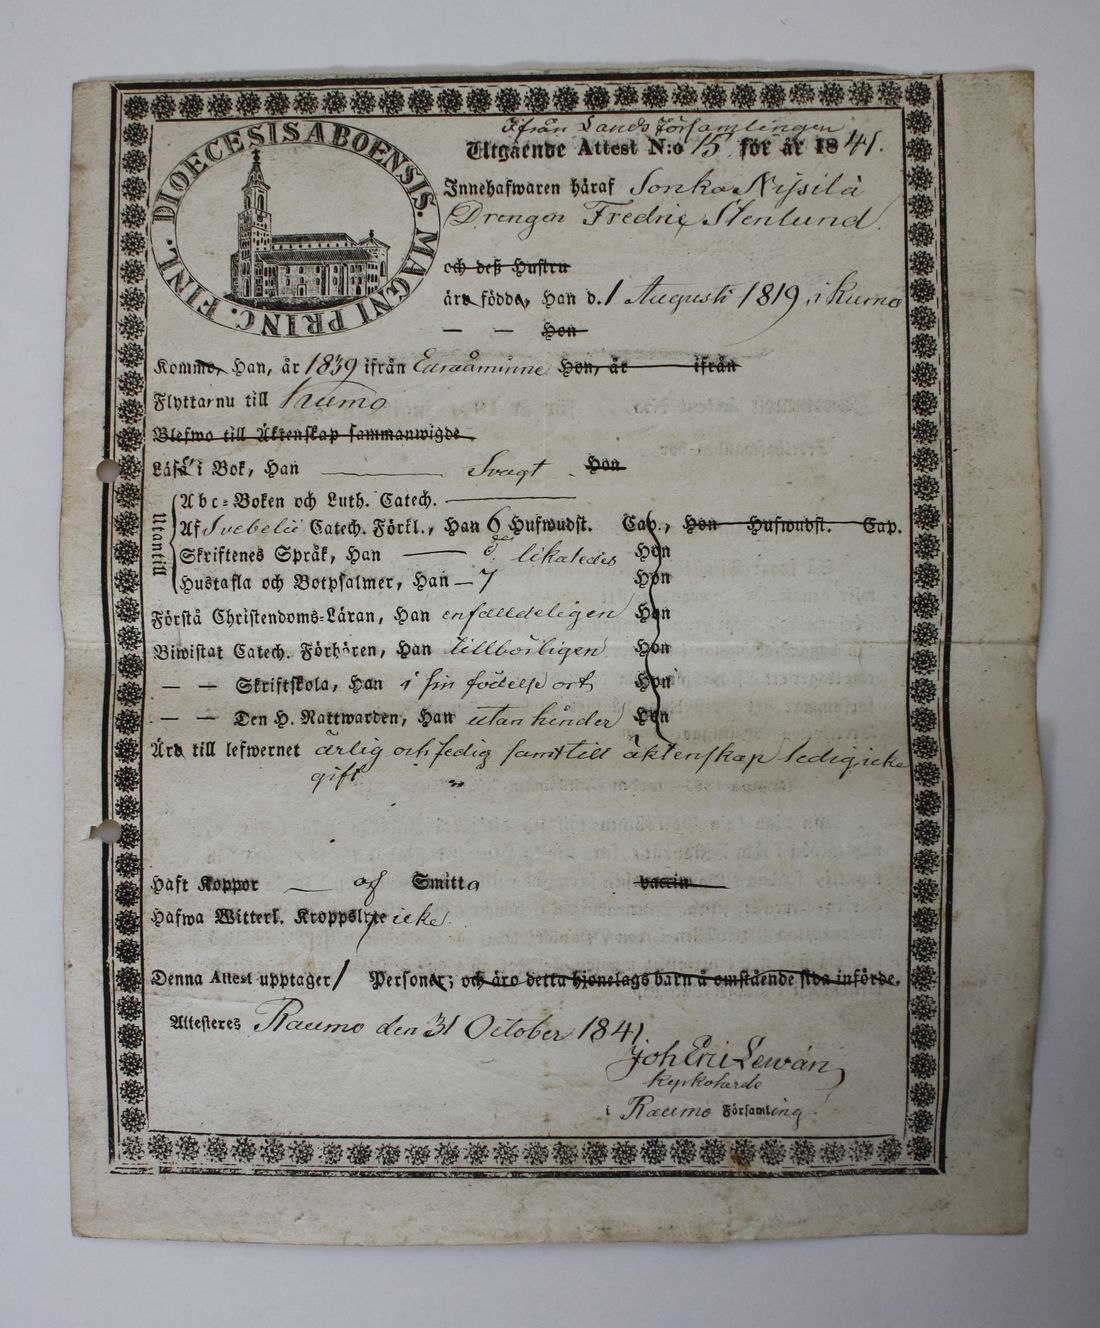 DIOECESIS ABOENSIS. MAGNI PRINC. FINL.
Ifrån Lands Församlingen
Utgående Attest N:o 15 för år 1841.
Innehafwaren häraf Sonka Nissilä
Drengen Fredric Stenlund.
och deß Hustru
äro födde, Han d. 1 Augusti 1819, i Kumo
— — Hon
Kommo, Han, år 1839 ifrån Euraåminne Hon, år ifrån
Flyttar nu till Kumo
Blefwo till Äktenskap sammanwigde
Läsa i Bok, Han — Svagt Hon
Utantill
Abc-Boken och Luth. Catech. —
Af Svebelii Catech. Förkl., Han 6 Hufwudst. Cap., Hon Hufwudst. Cap.
Skriftenes Språk, Han — likaledes Hon
Hustafla och Botpsalmer, Han — 7 Hon
Förstå Christendoms-Läran, Han enfalldeligen Hon
Biwistat Catech. Förhören, Han tillbörligen Hon
— — Skriftskola, Han i sin födelse ort Hon
— — Den H. Nattwarden, Han utan hinder Hon
Äro till lefwernet ärlig och sedig samt till äktenskap ledig icke
gift
Haft Koppor — af Smitta vaccin
Hafwa Witterl. Kroppslyte icke
Denna Attest upptager 1 Personer; och äro detta hjonelags barn å omstående sida införde.
Attesteres Raumo den 31 October 1841.
Joh Eric Lewán
Kyrkoherde
i Raumo Församling.